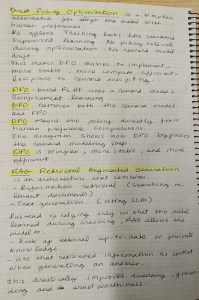 Direct Policy Optimization is a simpler
alternative for align the model with
human preference.
It offers training looks like standard
supervised learning. No policy rollout
during optimization. No reward model
drift
This makes DPO easier to implement,
more stable, more compute-efficient
DPO-based RLHF uses a reward model +
reinforcement learning
DPO removes both the reward model
and PPO
DPO trains the policy directly from
human preference comparisons
The diagram shows how DPO bypasses
the reward modeling step
DPO is simpler, more stable, and more
efficient
RAG: Retrieval Augmented Generation
is an architecture that combines
- Information retrieval (searching
relevant documents)
- Text generation (using LLM)
Instead of relying only on what the model
learned during training, RAG allows the
model to:
- Look up external up-to-date or private
knowledge
- Use that retrieved information as context
when generating an answer.
This drastically improves accuracy,
and trustworthiness.